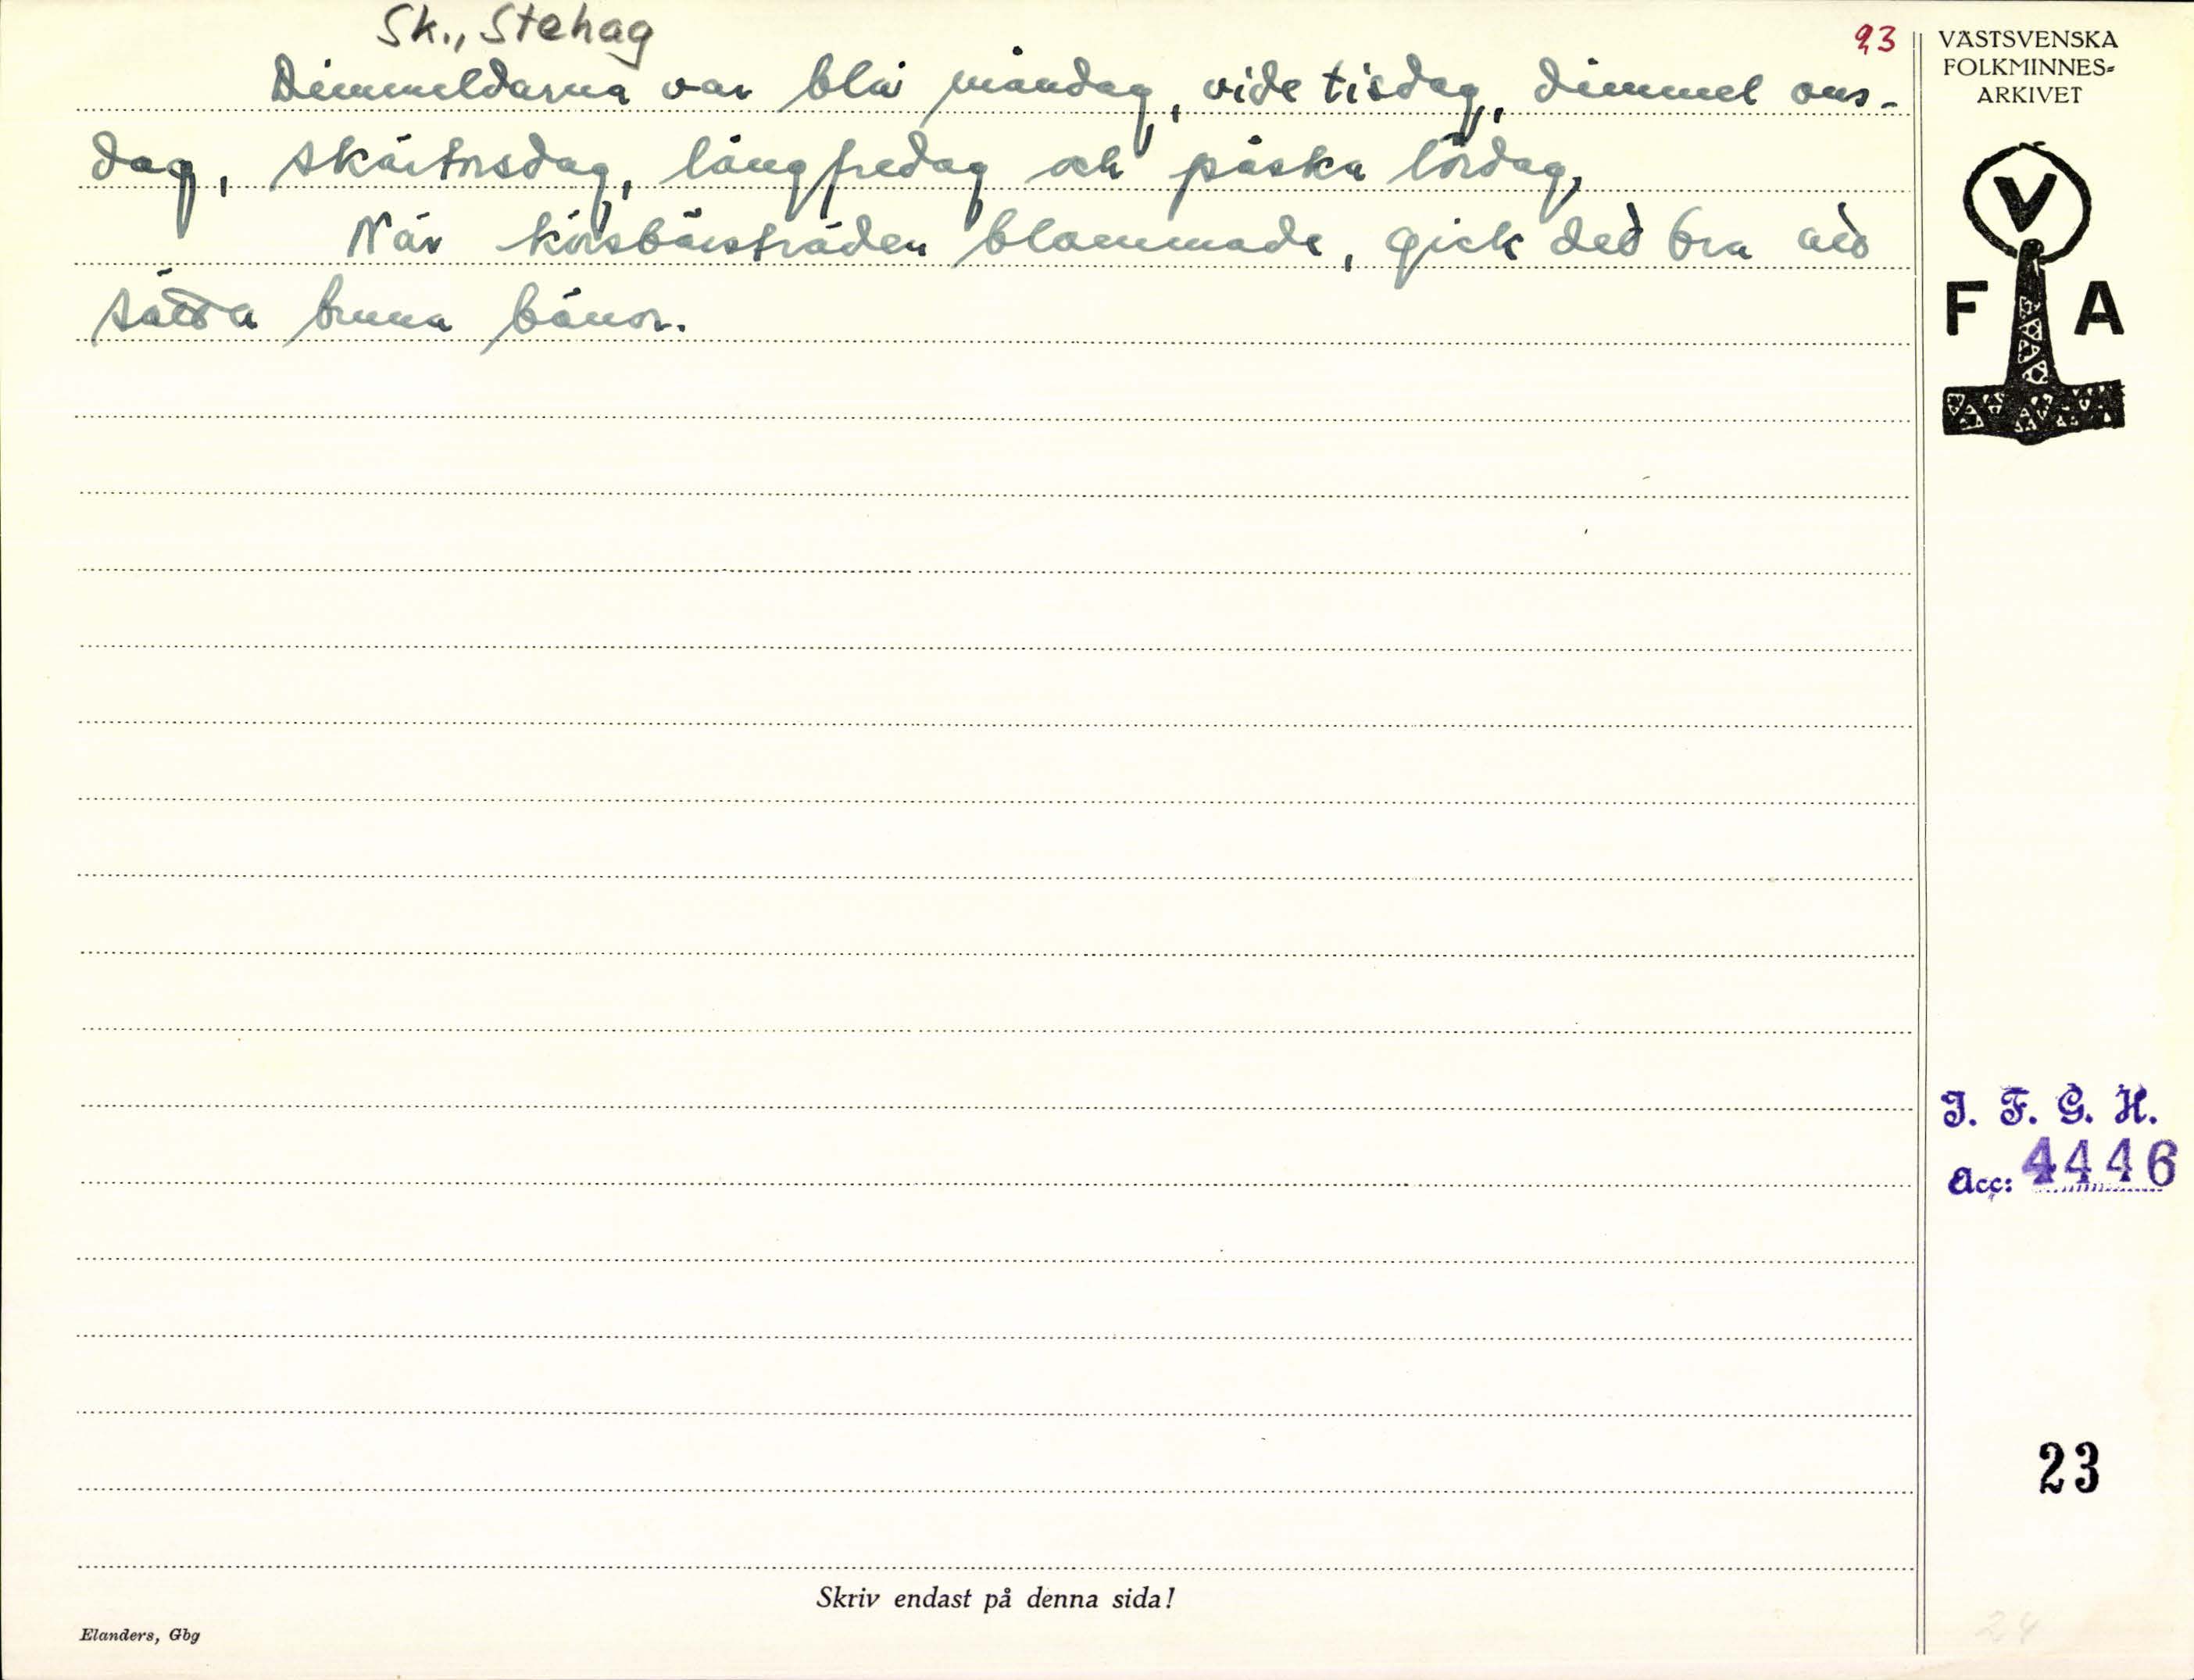 Sk., Stehag
93
Dimmeldarna var blå måndag, vide tisdag, dimmel ons-
dag, skärtorsdag, långfredag och påska lördag,
När körsbärsträden blommade, gick det bra att
sätta bruna bönor.
VÄSTSVENSKA
FOLKMINNES-
ARKIVET
V
F A
I. F. G. H.
Acc: 4446
23
Skriv endast på denna sida!
Elanders, Gbg
24